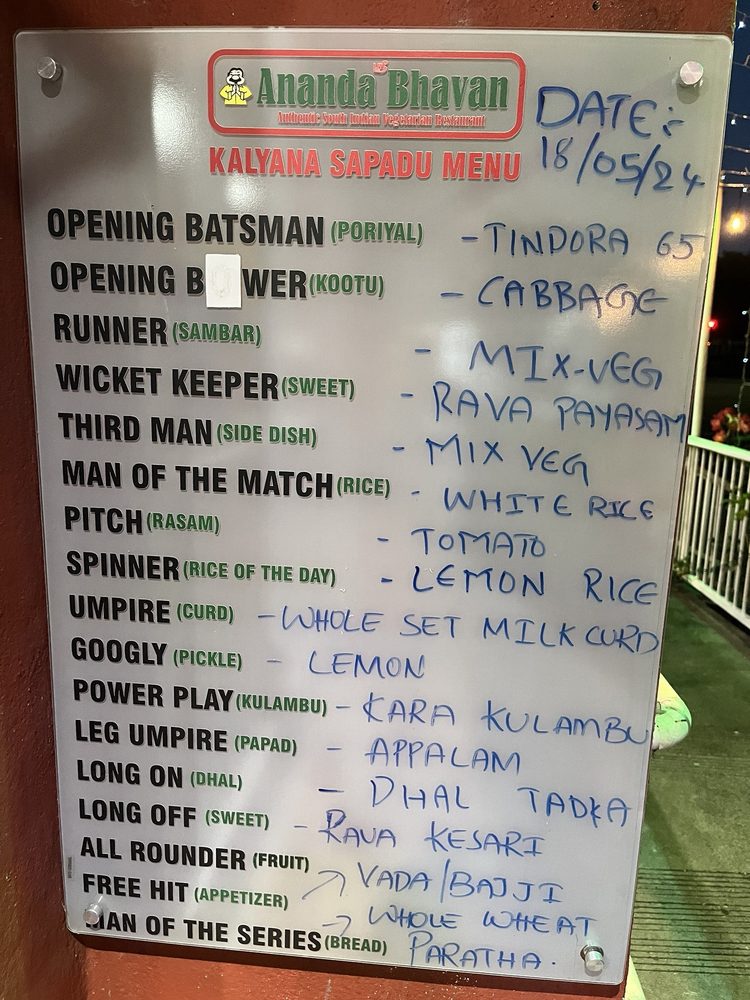 Ananda Bhavan
Authentic South Indian Vegetarian Restaurant
KALYANA SAPADU MENU
DATE:-
18/05/24
OPENING BATSMAN (PORIYAL) - TINDORA 65
OPENING BOWER (KOOTU) - CABBAGE
RUNNER (SAMBAR) - MIX-VEG
WICKET KEEPER (SWEET) - RAVA PAYASAM
THIRD MAN (SIDE DISH) - MIX VEG
MAN OF THE MATCH (RICE) - WHITE RICE
PITCH (RASAM) - TOMATO
SPINNER (RICE OF THE DAY) - LEMON RICE
UMPIRE (CURD) - WHOLE SET MILK CURD
GOOGLY (PICKLE) - LEMON
POWER PLAY (KULAMBU) - KARA KULAMBU
LEG UMPIRE (PAPAD) - APPALAM
LONG ON (DHAL) - DHAL TADKA
LONG OFF (SWEET) - RAVA KESARI
ALL ROUNDER (FRUIT)
FREE HIT (APPETIZER) VADA/BAJJI
MAN OF THE SERIES (BREAD) WHOLE WHEAT
PARATHA.